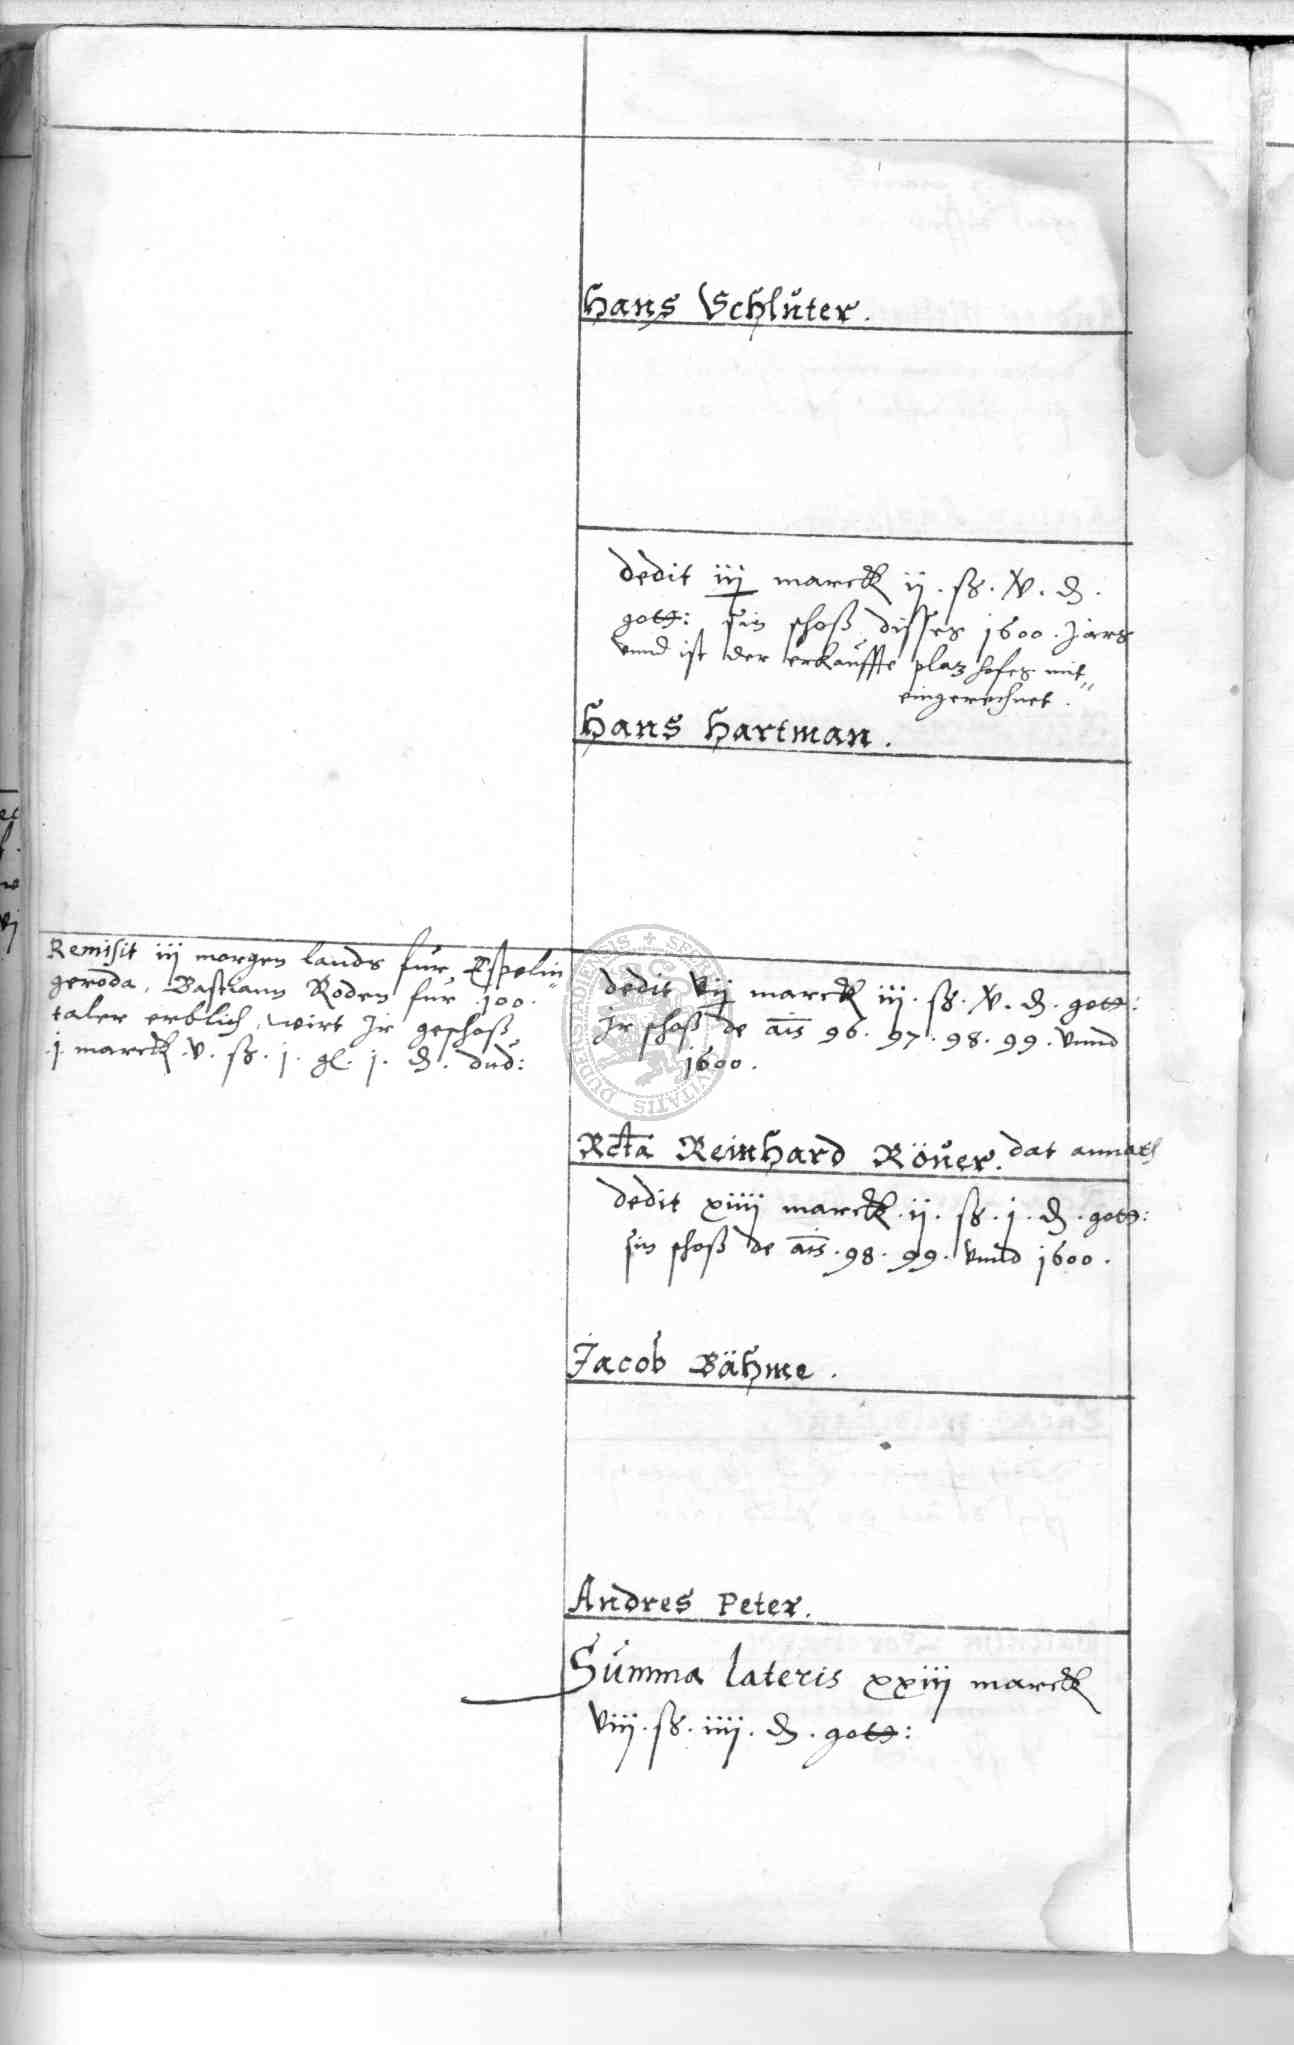 Hans Schlŭter.
dedit iij marck ij. ß. v. d.
gott: sin schoß disses 1600. Jars
vnnd ist der erkauffte plaz hofes mit
eingerechnet.
Hans Hartman.
Remisit iij morgen lands fur Esplin"
geroda, Bastiann Roden fur 100.
taler erblich, wirt Jr geschoß
j. marck v. ß. j. gl. j. d. dud:
dedit vij marck iij. ß. v. d. gott:
Jr schoß de ais 96. 97. 98. 99. vnnd
1600.
Rcta Reinhard Röuer. dat annath
dedit xiiij marck. ij. ß. j. d. gott:
sin schoß de ais. 98. 99. vnnd 1600.
Jacob Bähme.
Andres Peter.
Summa lateris xxiij marck
viij. ß. iiij. d. gott: